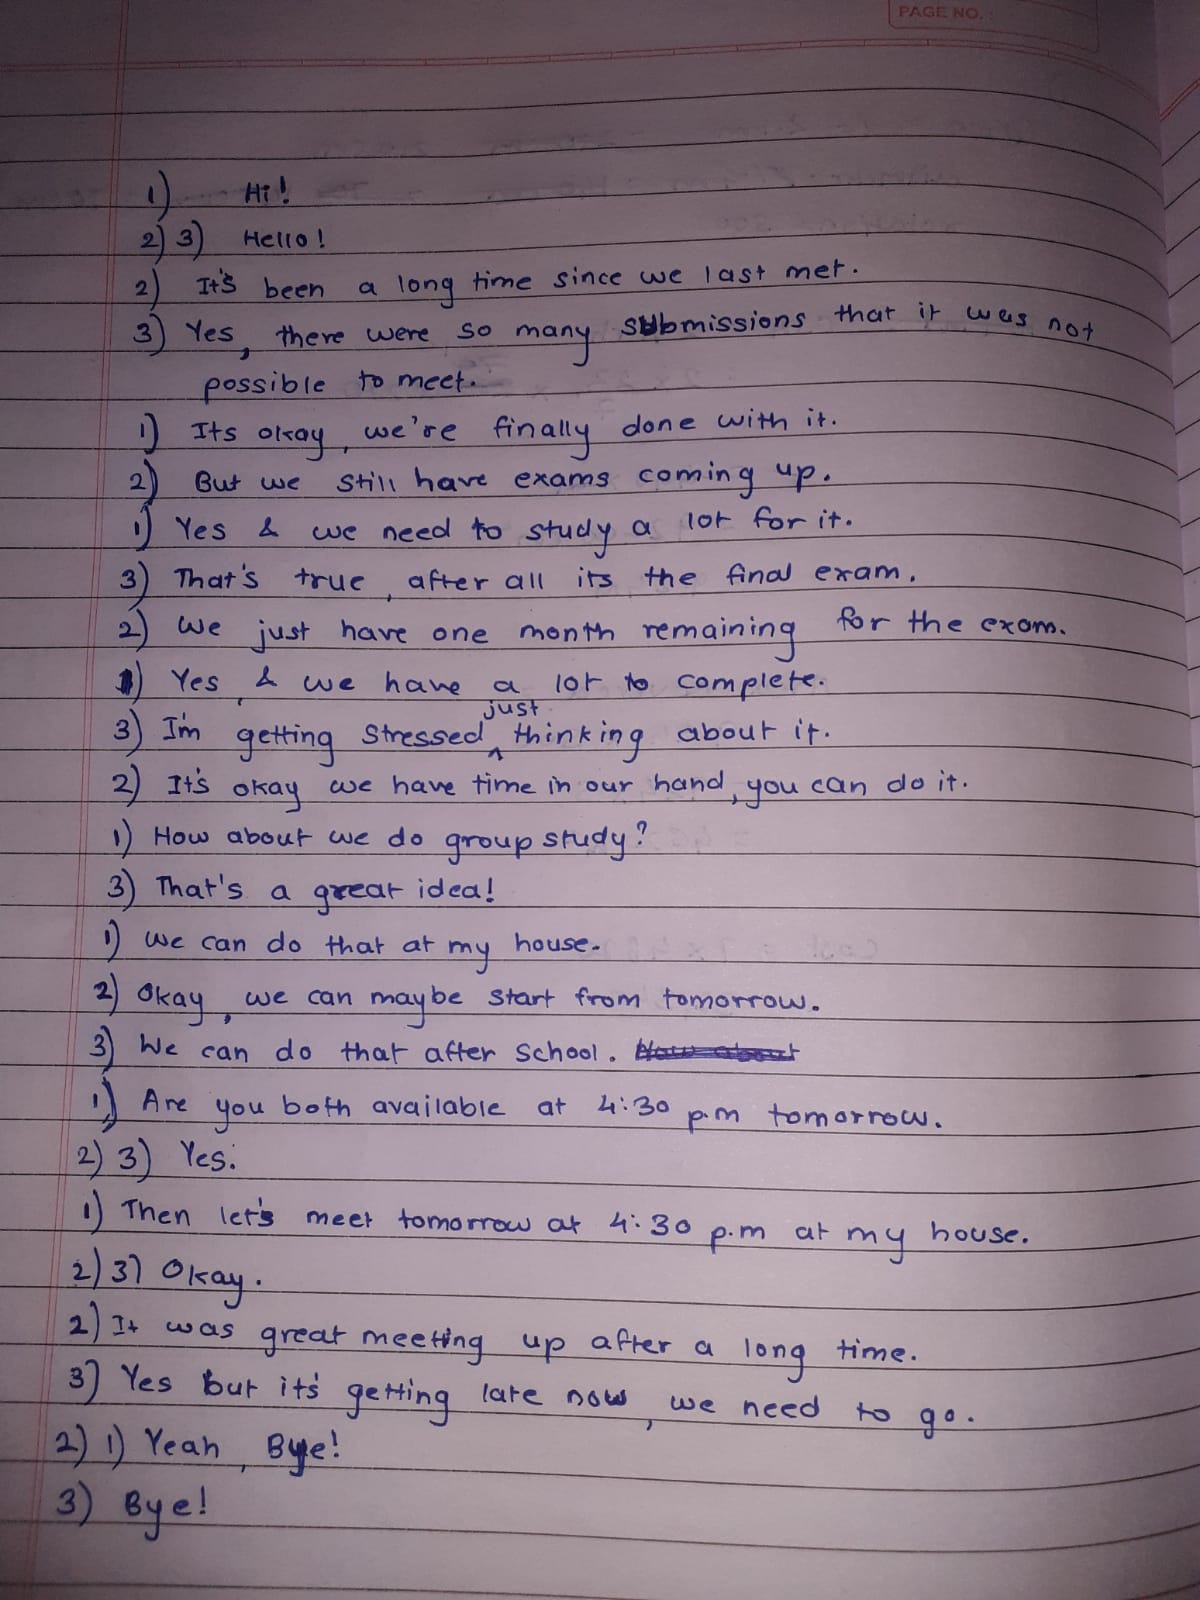 PAGE NO.
1) Hi!
2) 3) Hello!
2) It's been a long time since we last met.
3) Yes, there were so many submissions that it was not
possible to meet.
1) Its okay, we're finally done with it.
2) But we still have exams coming up.
1) Yes & we need to study a lot for it.
3) That's true, after all its the final exam.
2) We just have one month remaining for the exam.
1) Yes, & we have a lot to complete.
3) I'm getting stressed just thinking about it.
2) It's okay we have time in our hand, you can do it.
1) How about we do group study?
3) That's a great idea!
1) We can do that at my house.
2) Okay, we can maybe start from tomorrow.
3) We can do that after school. How about
1) Are you both available at 4:30 p.m tomorrow.
2) 3) Yes.
1) Then let's meet tomorrow at 4:30 p.m at my house.
2) 3) Okay.
2) It was great meeting up after a long time.
3) Yes but it's getting late now, we need to go.
2) 1) Yeah, Bye!
3) Bye!